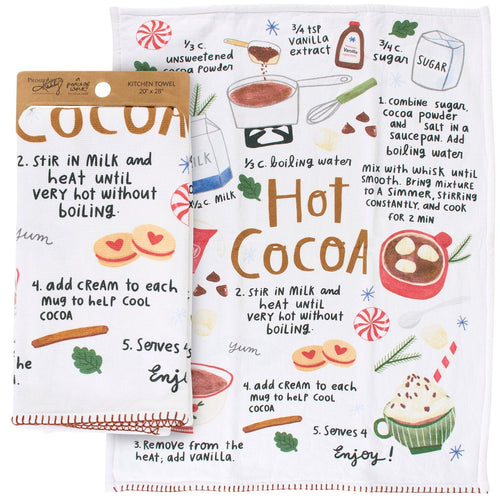 KITCHEN TOWEL
20" x 28"
COCOA
2. STIR IN MILK and
HEAT UNTIL
VERY HOT WITHOUT
BOILING.
Yum
4. ADD CREAM TO EACH
MUG TO HELP COOL
COCOA
5. SERVES 4
Enjoy
1/3 C.
UNSWEETENED
COCOA POWDER
3/4 TSP
VANILLA
EXTRACT
Vanilla
3/4 C.
SUGAR
SUGAR
1. COMBINE SUGAR,
COCOA POWDER
and SALT IN A
SAUCEPAN. ADD
BOILING WATER
1/3 C. BOILING WATER
MIX WITH WHISK UNTIL
SMOOTH. BRING MIXTURE
TO A SIMMER, STIRRING
CONSTANTLY, AND COOK
FOR 2 MIN
1/2 C. MILK
Hot
COCOA
2. STIR IN MILK and
HEAT UNTIL
VERY HOT WITHOUT
BOILING.
Yum
4. ADD CREAM TO EACH
MUG TO HELP COOL
COCOA
5. SERVES 4
Enjoy!
3. REMOVE FROM THE
HEAT; ADD VANILLA.